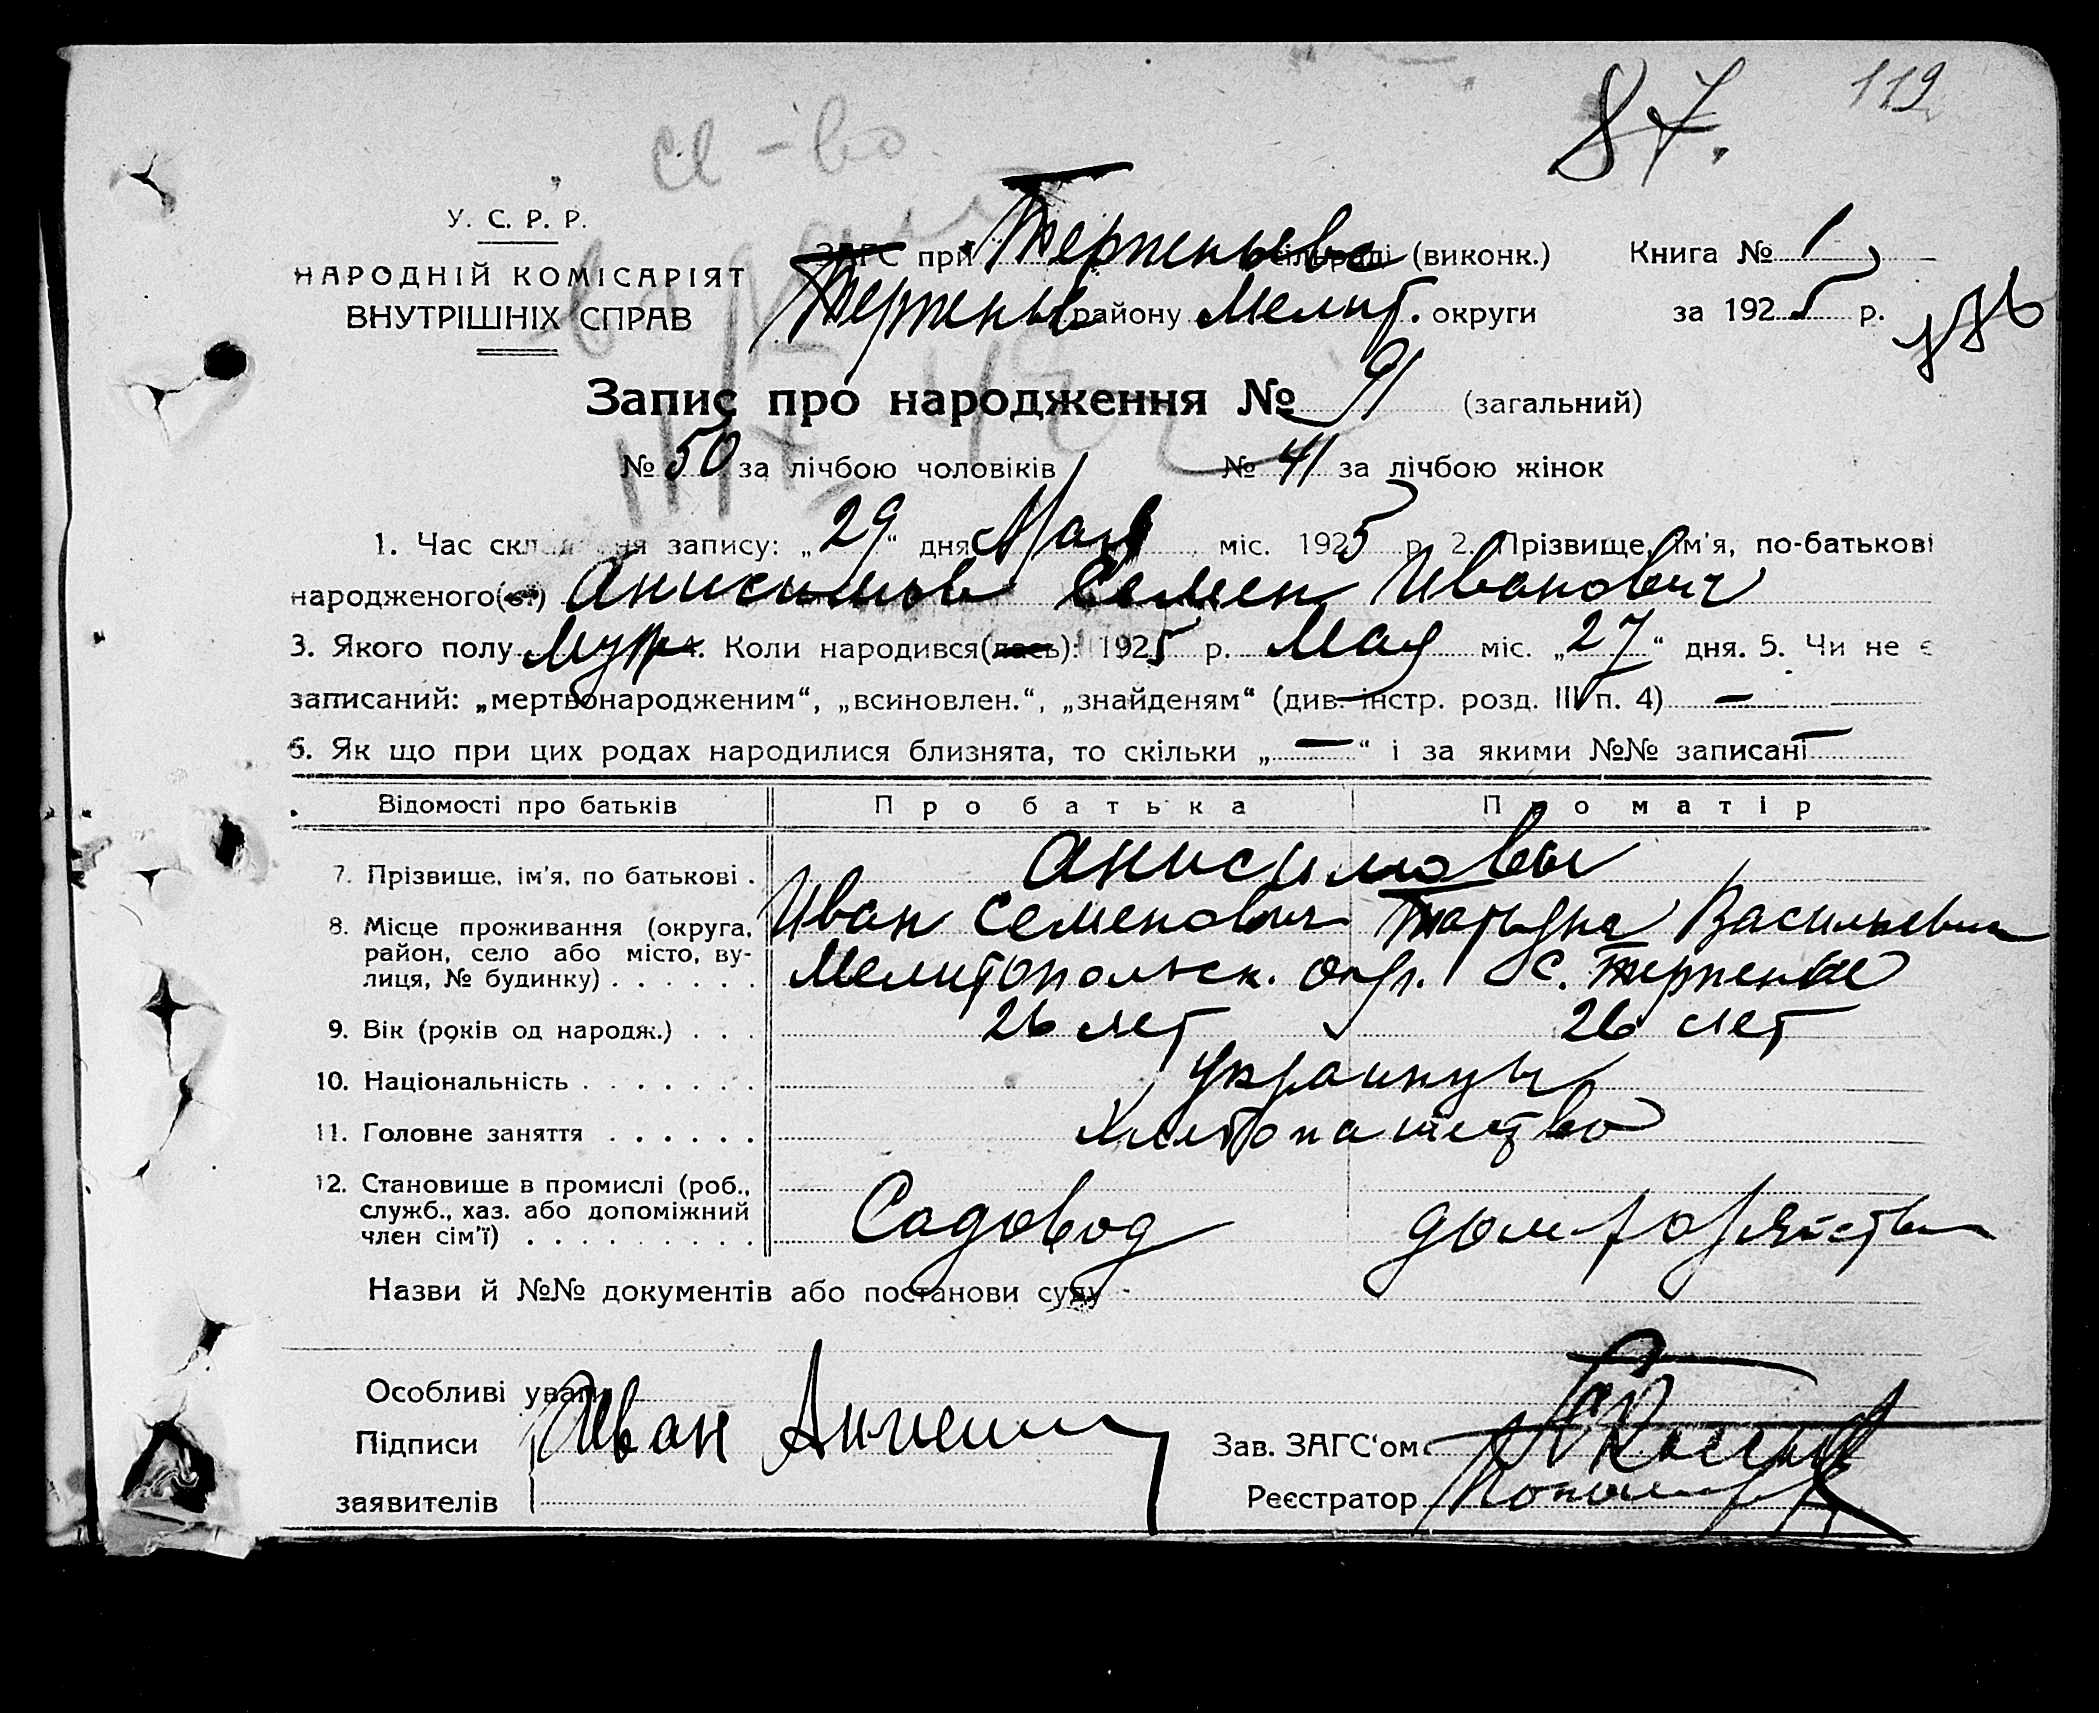 87. 119
У. С. Р. Р.
НАРОДНІЙ КОМІСАРІЯТ
ВНУТРІШНІХ СПРАВ
ЗАГС при Терпеньевс сільраді (виконк.) Книга № 1
Терпень району Мелит. округи за 1925 р.
Запис про народження № 91 (загальний)
№ 50 за лічбою чоловіків № 41 за лічбою жінок
1. Час складання запису: „29“ дня Мая міс. 1925 р. 2. Прізвище, ім'я, по-батькові
народженого Анисимов Семен Иванович
3. Якого полу Муж. 4. Коли народився(лась): 1925 р. Мая міс. „27“ дня. 5. Чи не є
записаний: „мертвонародженим“, „всиновлен.“, „знайденям“ (див. інстр. розд. III п. 4) —
6. Як що при цих родах народилися близнята, то скільки „—“ і за якими №№ записані —
Відомості про батьків Про батька Про матір
7. Прізвище, ім'я, по батькові . Анисимовы
Иван Семенович Татьяна Васильевна
8. Місце проживання (округа, район, село або місто, вулиця, № будинку) . . . . . . Мелитопольск. окр. с. Терпенье
9. Вік (років од народж.) . . . 26 лет 26 лет
10. Національність . . . . . . . Украинцы
11. Головне заняття . . . . . . Хлебопашество
12. Становище в промислі (роб., служб., хаз. або допоміжний член сім'ї) . . . . . . . . . Садовод
Назви й №№ документів або постанови суду
Особливі уваги
Підписи Иван Анисим
заявителів
Зав. ЗАГС'ом
Реєстратор